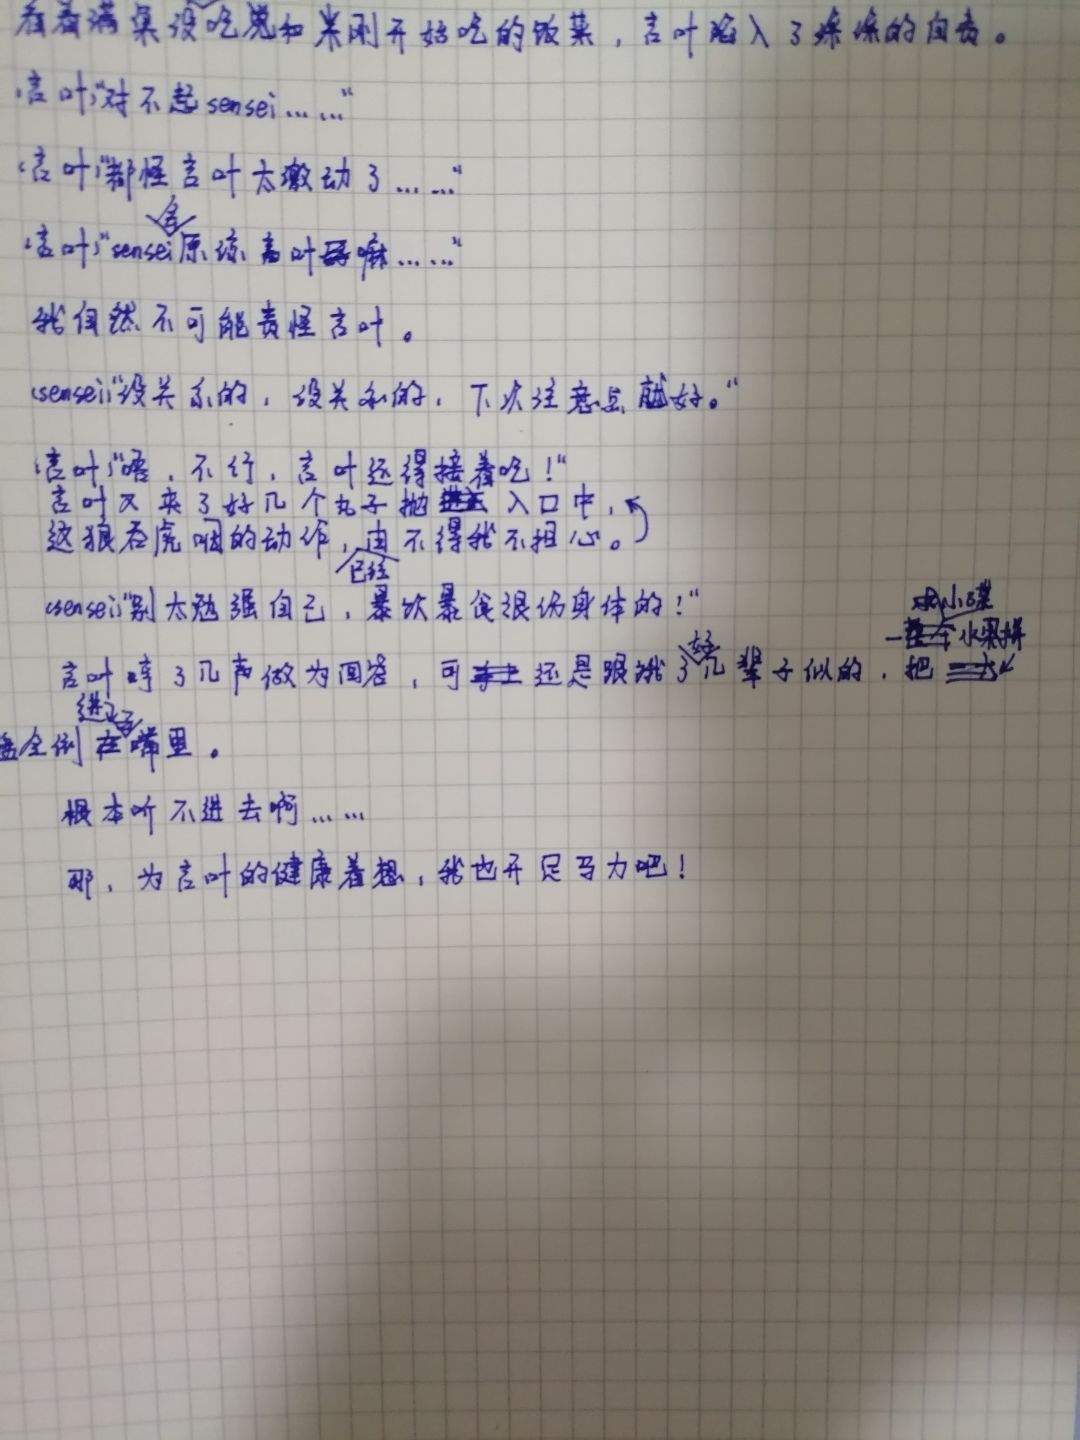 看着满桌没吃完和未刚开始吃的饭菜，言叶陷入了深深的自责。
言叶:"对不起sensei……"
言叶:"都怪言叶太激动了……"
会
言叶:"sensei原谅言叶嘛……"
我自然不可能责怪言叶。
sensei:"没关系的，没关系的，下次注意点就好。"
言叶:"唔，不行，言叶还得接着吃！"
言叶又夹了好几个丸子抛入口中，
这狼吞虎咽的动作，由不得我不担心。
已经
sensei:"别太勉强自己，暴饮暴食很伤身体的！"
小碟
一水果拼
好
言叶哼了几声做为回答，可还是跟饿了几辈子似的，把
进了
盘全倒嘴里。
根本听不进去啊……
那，为言叶的健康着想，我也开足马力吧！